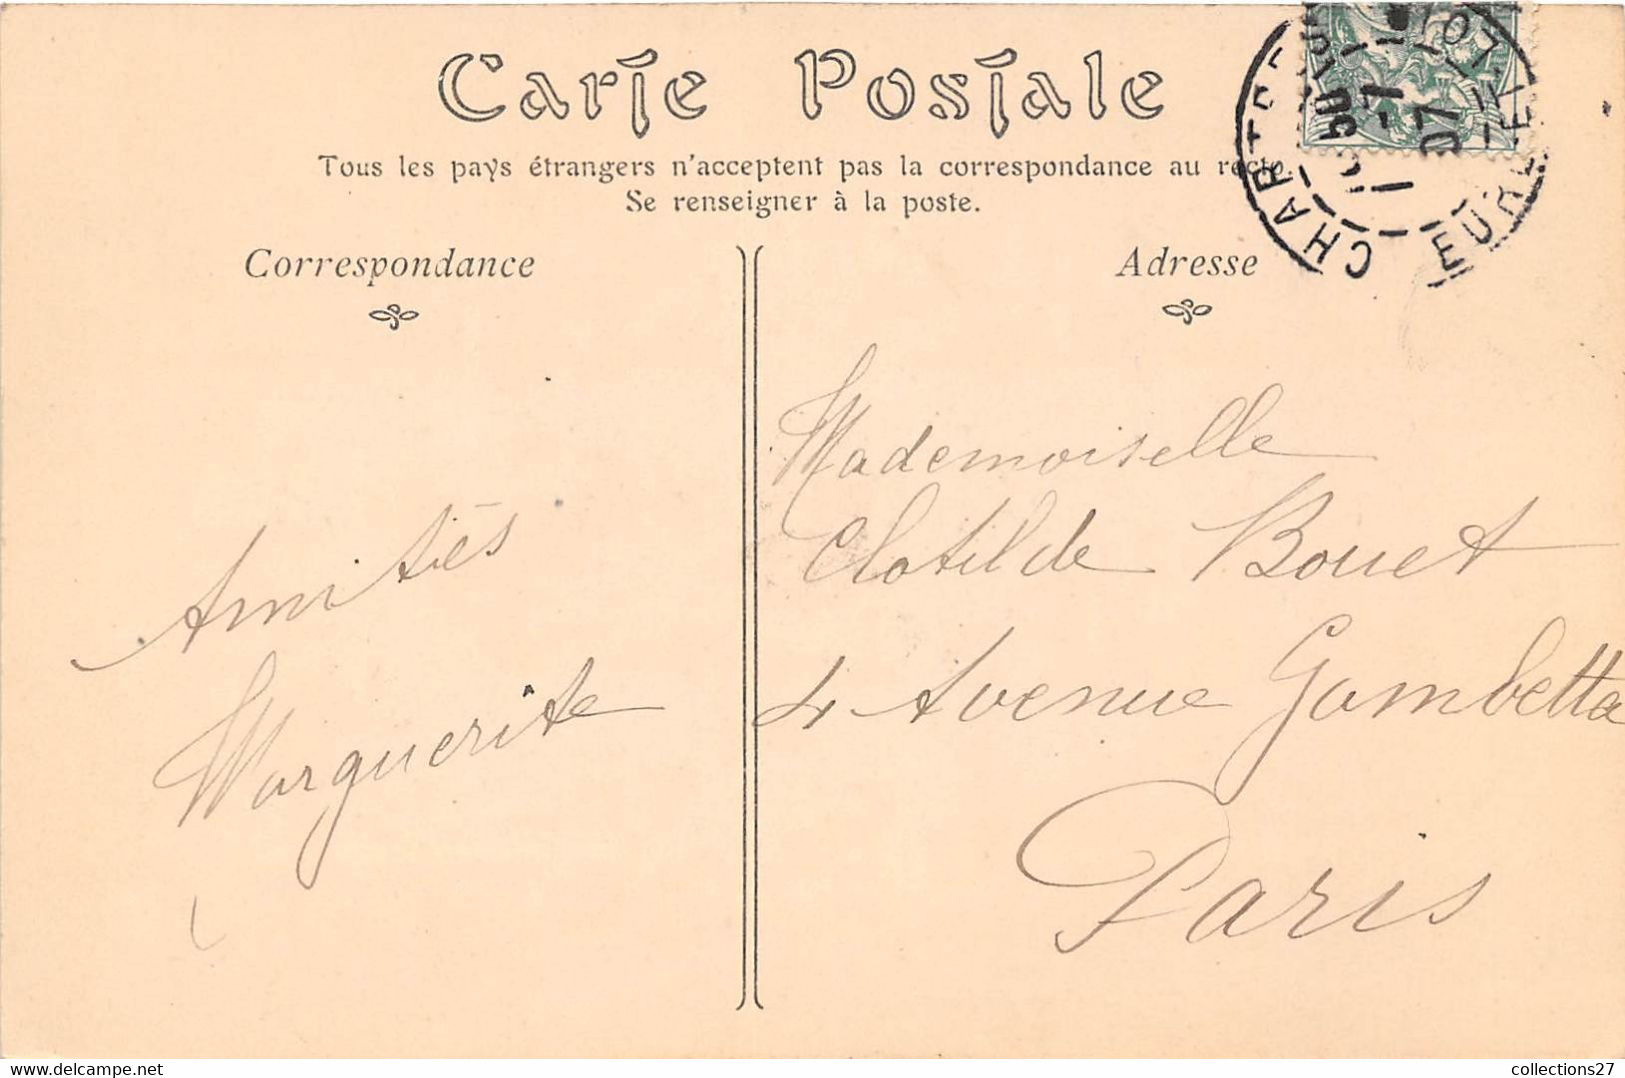 Carte Postale
Tous les pays étrangers n'acceptent pas la correspondance au recto.
Se renseigner à la poste.
Correspondance
Adresse
CHARTRES
EURE-ET-LOIR
07
Amitiés
Marguerite
Mademoiselle
Clotilde Bouet
4 Avenue Gambetta
Paris
delcampe.net
collections27